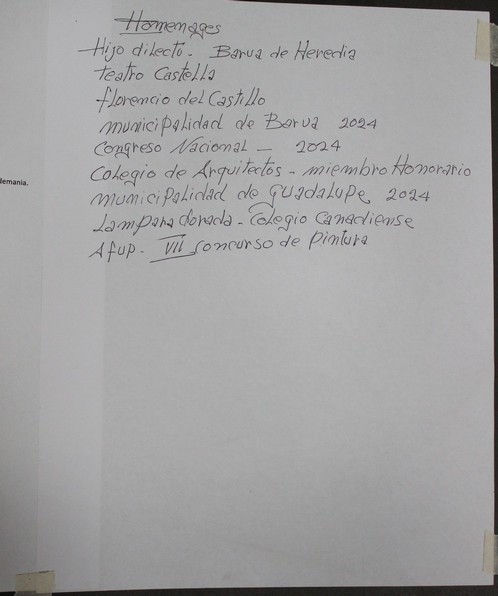 Homenages
Hijo dilecto - Barva de Heredia
Teatro Castella
florencio del Castillo
municipalidad de Barva 2024
Congreso Nacional - 2024
Colegio de Arquitectos - miembro Honorario
municipalidad de Guadalupe 2024
Lampara dorada - Colegio Canadiense
lemania.
Afup - VII concurso de pintura